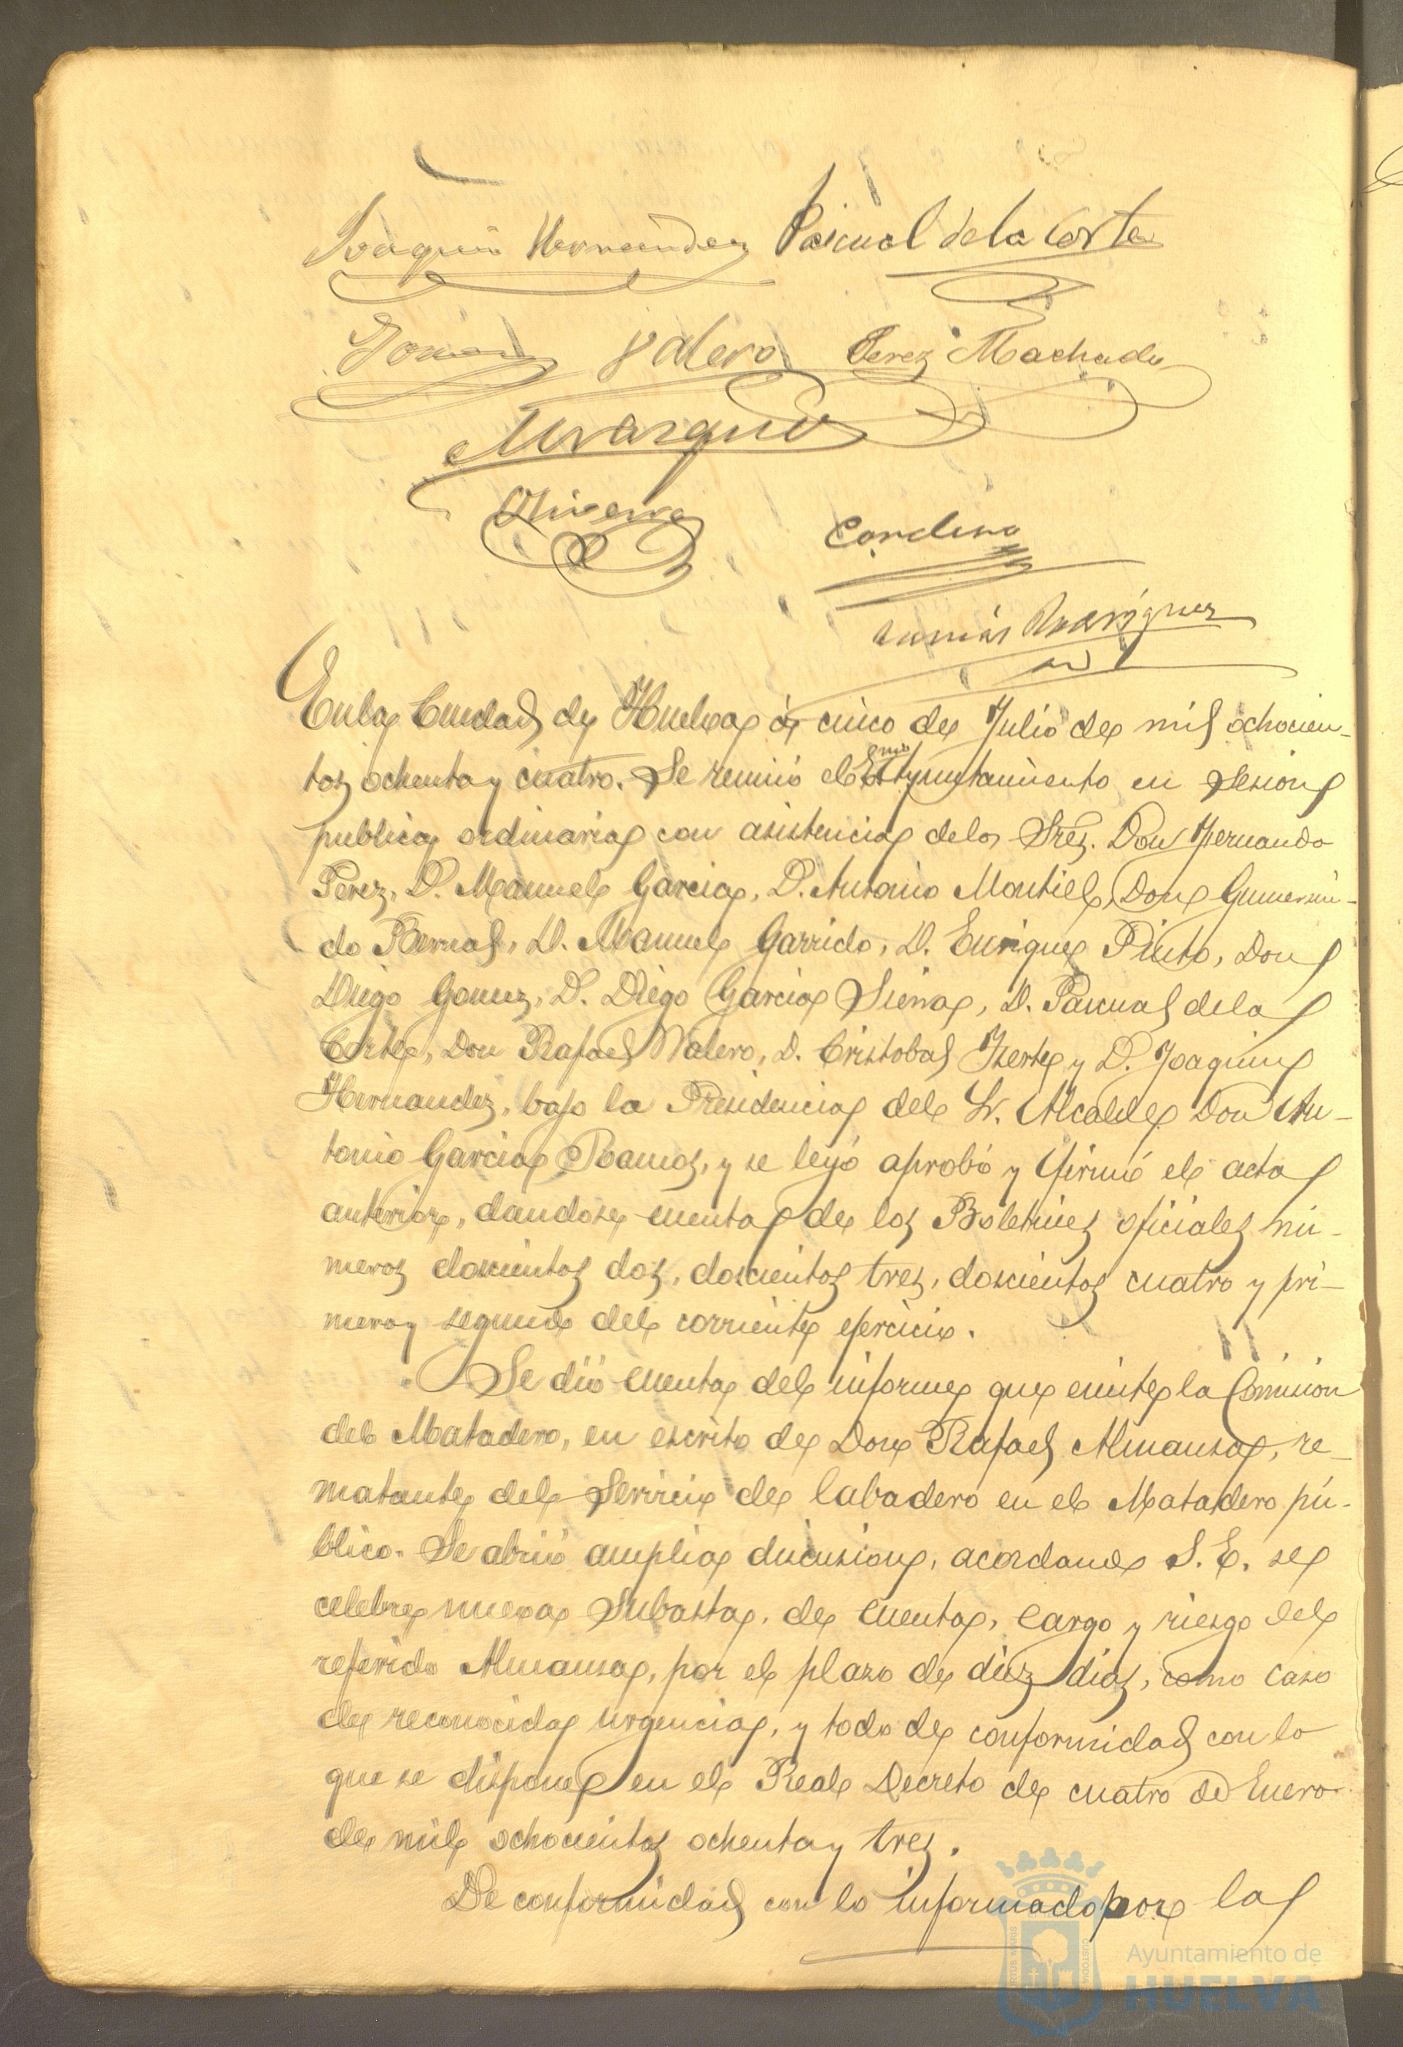 Joaquin Hernandez Pascual de la Corte
Gomez Valero Perez Machado
Marquez
Olivera
Cordero
Tomás Rodriguez
En la Ciudad de Huelva á cinco de Julio de mil ochocien-
tos ochenta y cuatro. Se reunió el Exmo Ayuntamiento en Sesion
publica ordinaria con asistencia de los Sres. Don Fernando
Perez, D. Manuel Garcia, D. Antonio Montiel, Don Gumersin-
do Bernal, D. Manuel Garrido, D. Enrique Pinto, Don
Diego Gomez, D. Diego Garcia Sierra, D. Pascual de la
Corte, Don Rafael Valero, D. Cristobal Iserte y D. Joaquin
Hernandez, bajo la Presidencia del Sr. Alcalde Don An-
tonio Garcia Ramos, y se leyó aprobó y firmó el acta
anterior, dandose cuenta de los Boletines oficiales nú-
meros doscientos dos, doscientos tres, doscientos cuatro y pri-
mero y segundo del corriente ejercicio.
Se dió cuenta del informe que emite la Comision
del Matadero, en escrito de Don Rafael Almansa, re-
matante del Servicio de labadero en el Matadero pú-
blico. Se abrió amplia discusion, acordando S. E. se
celebre nueva Subasta, de cuenta, cargo y riesgo del
referido Almansa, por el plazo de diez dias, como caso
de reconocida urgencia, y todo de conformidad con lo
que se dispone en el Real Decreto de cuatro de Enero
de mil ochocientos ochenta y tres.
De conformidad con lo informado por la
Ayuntamiento de
HUELVA